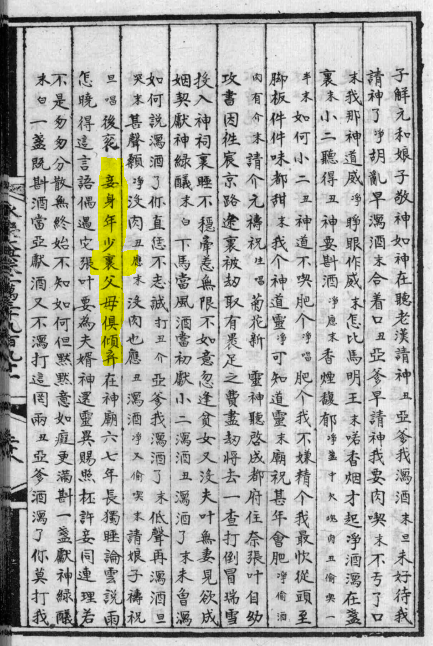 子解元和娘子敬神如神在聽老漢請神丑亞爹我瀉酒末旦末好待我
請神了淨胡亂早瀉酒末合着口丑亞爹早請神我要肉喫末不丂了口
末我那神道威淨睜眼作威末怎比馬明王末喏香烟才起淨酒瀉在盞
裏末小二聽得丑神要斟酒淨應末香煙馥郁淨盞中大塊肉丑偷喫一
半末如何小二丑神道不喫肥个淨唱肥个我不嫌精个我最忺從頭至
脚板件件味都甜末我个神道靈淨可知道靈末廟祝甚年會肥淨偷酒
肉有介末請介元禱祝生唱菊花新靈神聽啓成都府住奈張叶自幼
攻書因往宸京路途裏被刼取有裹足之費盡刼將去一查打倒冒瑞雪
投入神祠裏睡不穩惹無限不如意忽逢貧女又没夫叶無妻見欲成
姻契獻神綠醑末白下馬當風酒當初獻小二瀉酒丑瀉酒了末未曾瀉
如何說瀉酒了你直恁不志誠打丑介亞爹我瀉酒了末低聲再瀉酒旦
哭末甚聲頼淨没肉丑應末没肉也應丑瀉酒淨又偷喫末請娘子禱祝
旦唱後衮妾身年少裏父母俱傾弃在神廟六七年長獨睡論雲説雨
怎曉得這言語偶遇它張叶要為夫婿神還靈異賜照杯許妾同連理若
不是匆匆分散無終始不知如何但黙黙意如痴更滿斟一盞獻神綠醑
末白一盞既斟酒當亞獻酒又不瀉打這罔兩丑亞爹酒瀉了你莫打我